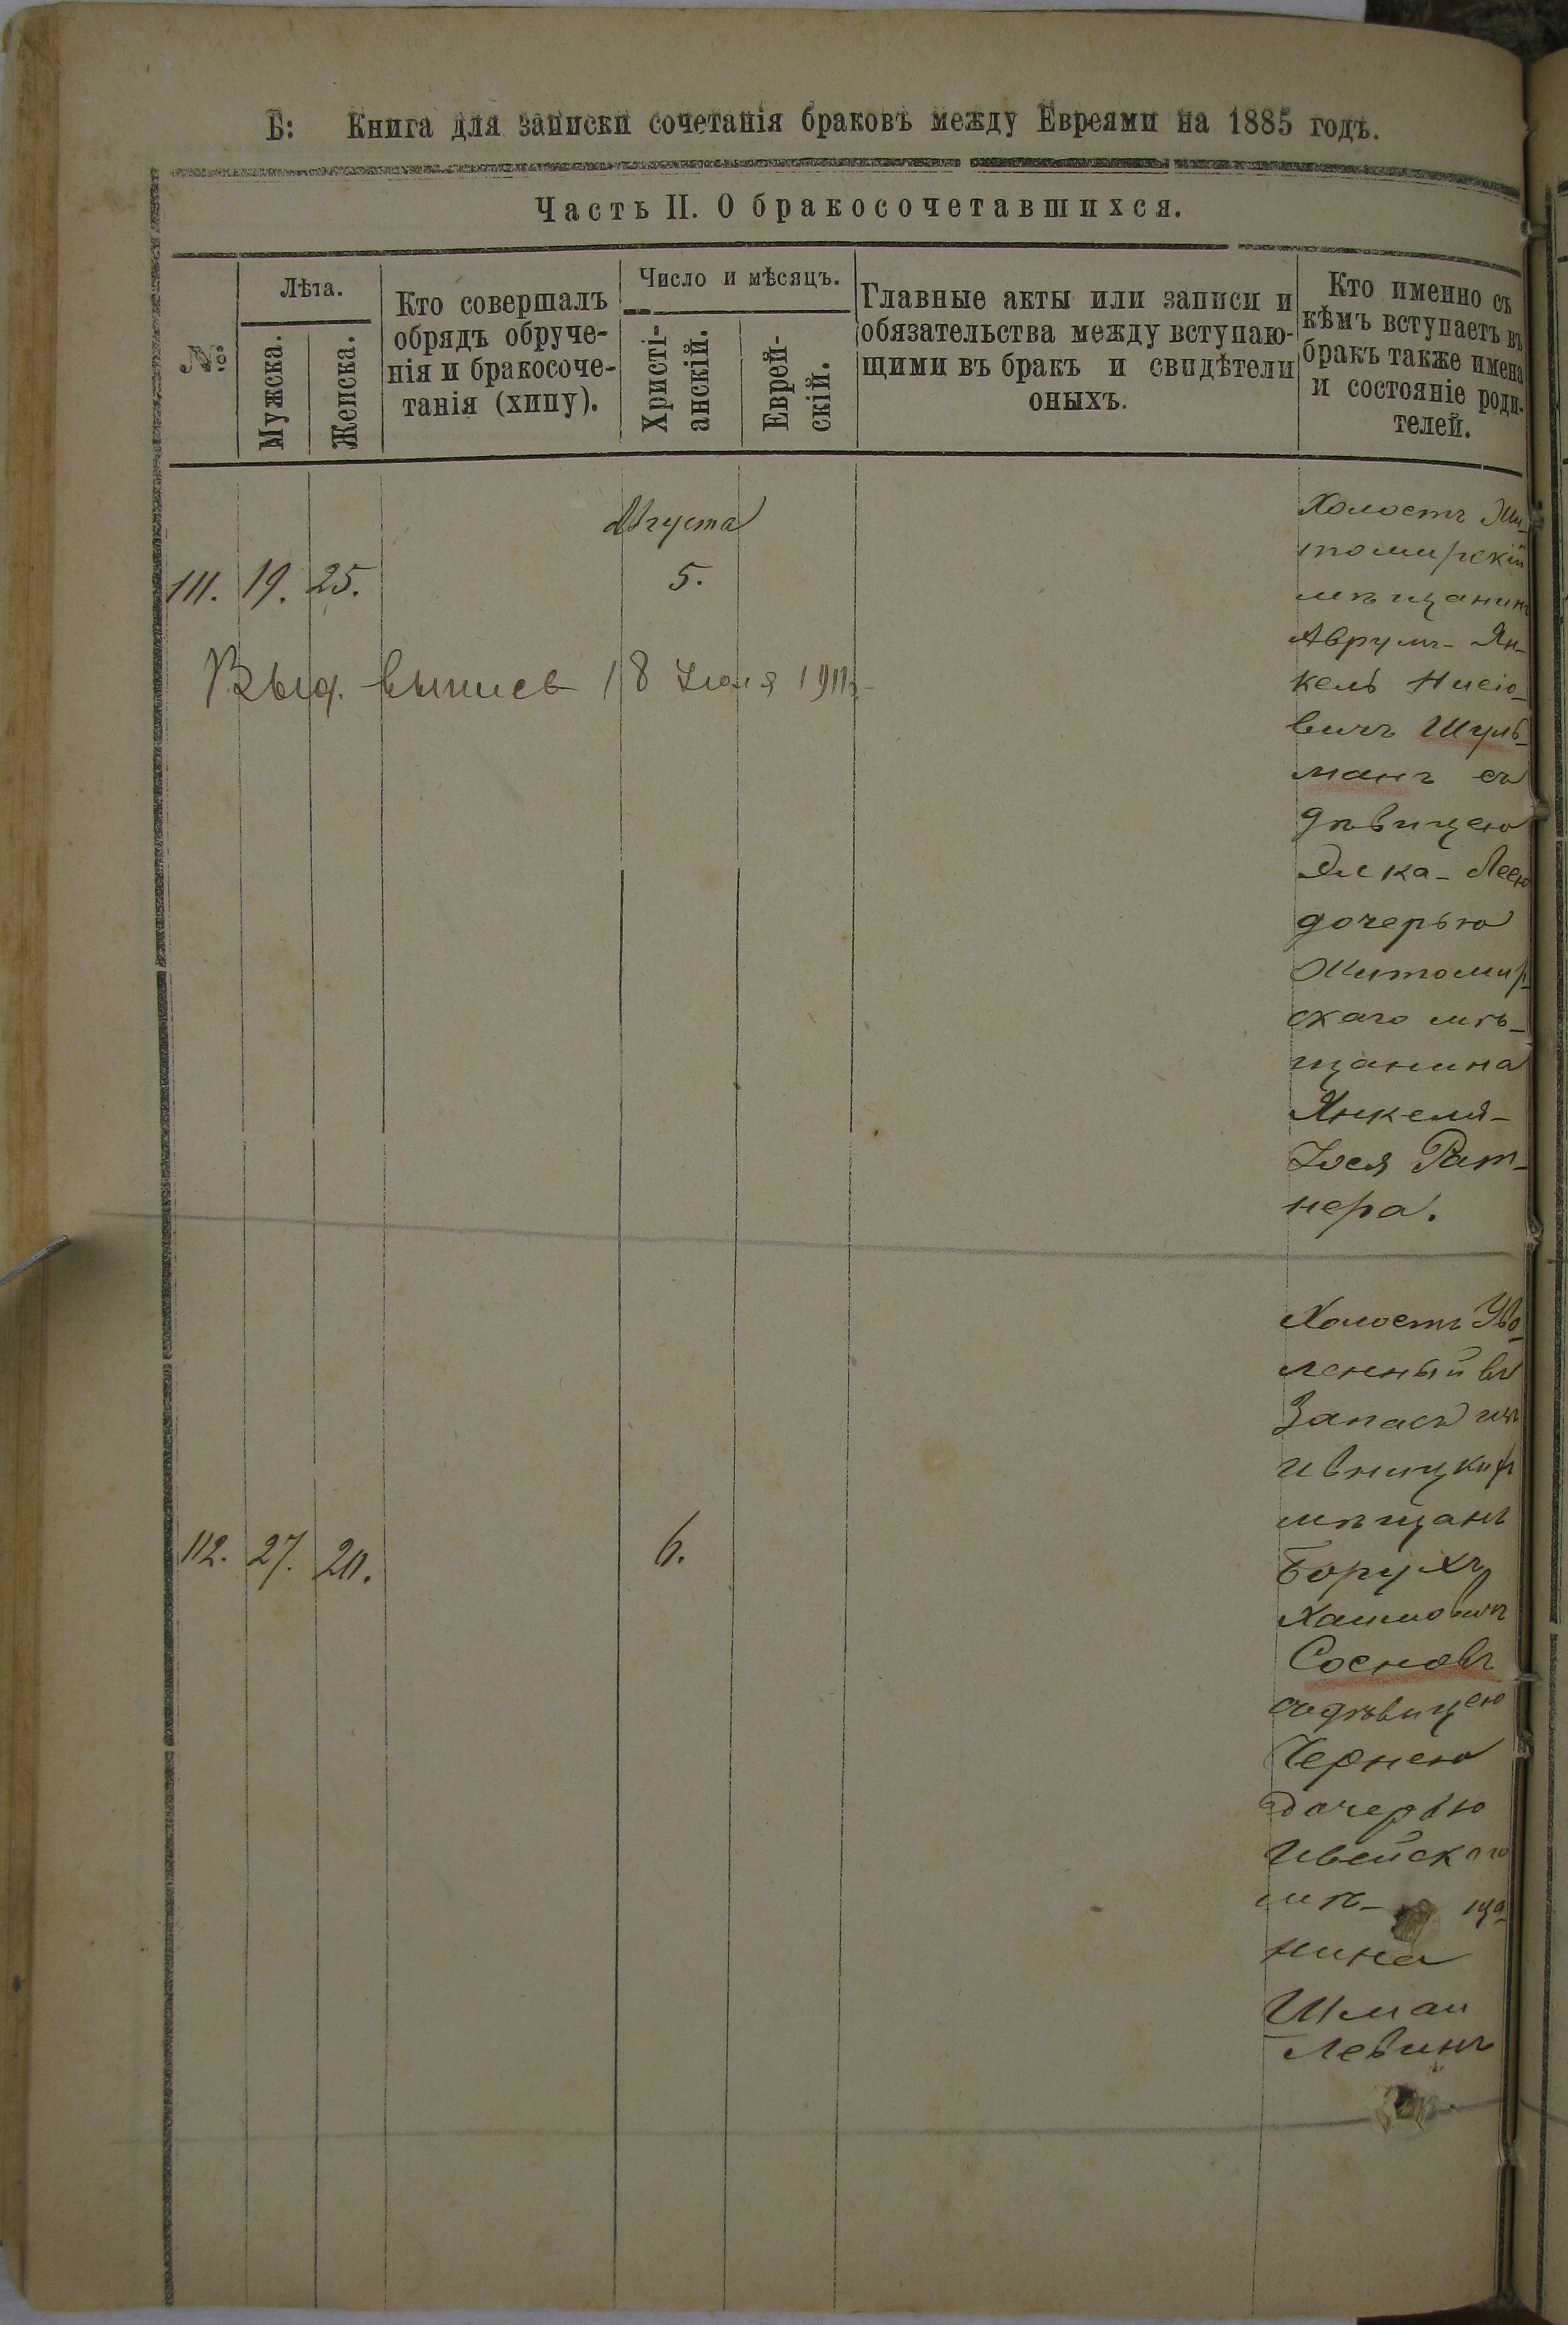 Б: Книга для записки сочетанія браковъ между Евреями на 1885 годъ.
Часть II. О бракосочетавшихся.
№
Лѣта.
Мужска.
Женска.
Кто совершалъ
обрядъ обруче-
нія и бракосоче-
танія (хипу).
Число и мѣсяцъ.
Христі-
анскій.
Еврей-
скій.
Главные акты или записи и
обязательства между вступаю-
щими въ бракъ и свидѣтели
оныхъ.
Кто именно съ
кѣмъ вступаетъ въ
бракъ также имена
и состояніе роди-
телей.
Августа
111. 19. 25. 5.
Выд. выпись 18 Іюля 1911г.
Холостъ Жи-
томирскій
мѣщанинъ
Аврумъ-Ян-
кель Нисіо-
вичъ Шуль-
манъ съ
дѣвицею
Элка-Леею
дочерью
Житомир-
скаго мѣ-
щанина
Янкеля-
Іося Рат-
нера.
112. 27. 20. 6.
Холостъ Уво-
ленный въ
Запасъ изъ
мѣщанъ
Борухъ
Хаимовичъ
Сосновъ
съ дѣвицею
Чернею
дочерью
мѣ- ща-
нина
Левинъ